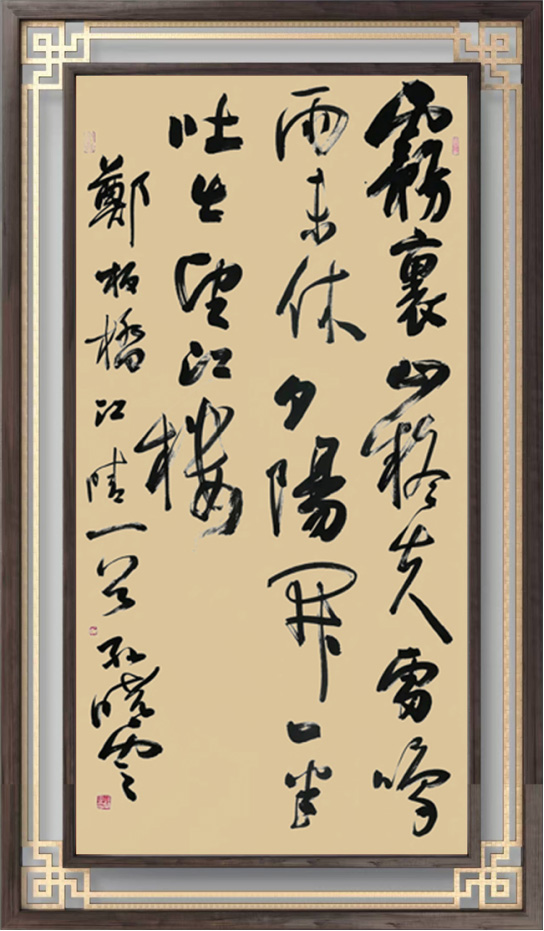 霧裏山疑失雷鳴
雨未休夕陽開一半
吐出望江樓
鄭板橋江晴一首孔曉雲